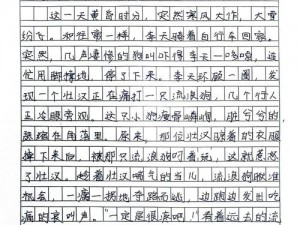 这一天黄昏时分，突然寒风大作，大雪
纷飞。如往常一样，李天骑着自行车回家。
突然，几声凄惨的狗叫吓得李天一哆嗦，连
忙用脚撑地，停了下来。李天环顾一圈，发
现一个壮汉正在痛打一只流浪狗，几个行人
正冷眼旁观。这只小狗瘦骨嶙峋，脏兮兮的
蜷缩在角落里。原来，那位壮汉晾着的衣服
掉下来后，被那只流浪狗叼着玩，这就惹怒
了壮汉。趁着壮汉喘气的当儿，流浪狗瞅准
机会，一瘸一拐地夺路而逃，边跑边发出吃
痛的哀叫声。“一定是很疼吧！”看着远去的流